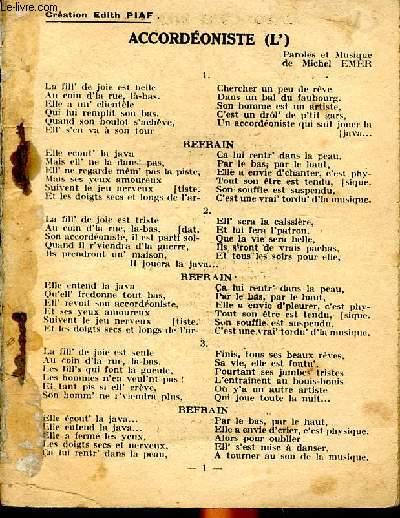 www.le-livre.com
Création Edith PIAF
ACCORDÉONISTE (L')
Paroles et Musique
de Michel EMER
1.
La fill' de joie est belle
Au coin d'la rue, là-bas.
Elle a un' clientèle
Qui lui remplit son bas.
Quand son boulot s'achève,
Ell' s'en va à son tour
Chercher un peu de rêve
Dans un bal du faubourg.
Son homme est un artiste,
C'est un drôl' de p'tit gars,
Un accordéoniste qui sait jouer la
[java...
REFRAIN
Elle écout' la java
Mais ell' ne la danse pas,
Ell' ne regarde mêm' pas la piste,
Mais ses yeux amoureux
Suivent le jeu nerveux [tiste.
Et les doigts secs et longs de l'ar-
Ça lui rentr' dans la peau,
Par le bas, par le haut,
Elle a envie d'chanter, c'est phy-
Tout son être est tendu, [sique.
Son souffle est suspendu,
C'est une vrai' tordu' d'la musique.
2.
La fill' de joie est triste
Au coin d'la rue, là-bas. [dat.
Son accordéoniste, il est parti sol-
Quand il r'viendra d'la guerre,
Ils prendront un' maison,
Ell' sera la caissière,
Et lui fera l'patron.
Que la vie sera belle,
Ils s'ront de vrais pachas,
Et tous les soirs pour elle,
Il jouera la java...
REFRAIN
Elle entend la java
Qu'ell' fredonne tout bas,
Ell' revoit son accordéoniste,
Et ses yeux amoureux
Suivent le jeu nerveux [tiste.
Et les doigts secs et longs de l'ar-
Ça lui rentr' dans la peau,
Par le bas, par le haut,
Elle a envie d'pleurer, c'est phy-
Tout son être est tendu, [sique.
Son souffle est suspendu,
C'est une vrai' tordu' d'la musique.
3.
La fill' de joie est seule
Au coin d'la rue, là-bas.
Les fill's qui font la gueule,
Les hommes n'en veul'nt pas !
Et tant pis si ell' crève,
Son homm' ne r'viendra plus.
Finis, tous ses beaux rêves,
Sa vie, elle est foutu'.
Pourtant ses jambes tristes
L'entraînent au bouis-bouis
Où y'a un autre artiste
Qui joue toute la nuit...
REFRAIN
Elle écout' la java...
Elle entend la java...
Elle a fermé les yeux,
Les doigts secs et nerveux,
Ça lui rentr' dans la peau,
Par le bas, par le haut,
Elle a envie d'crier, c'est physique.
Alors pour oublier
Ell' s'est mise à danser,
A tourner au son de la musique.
— 1 —